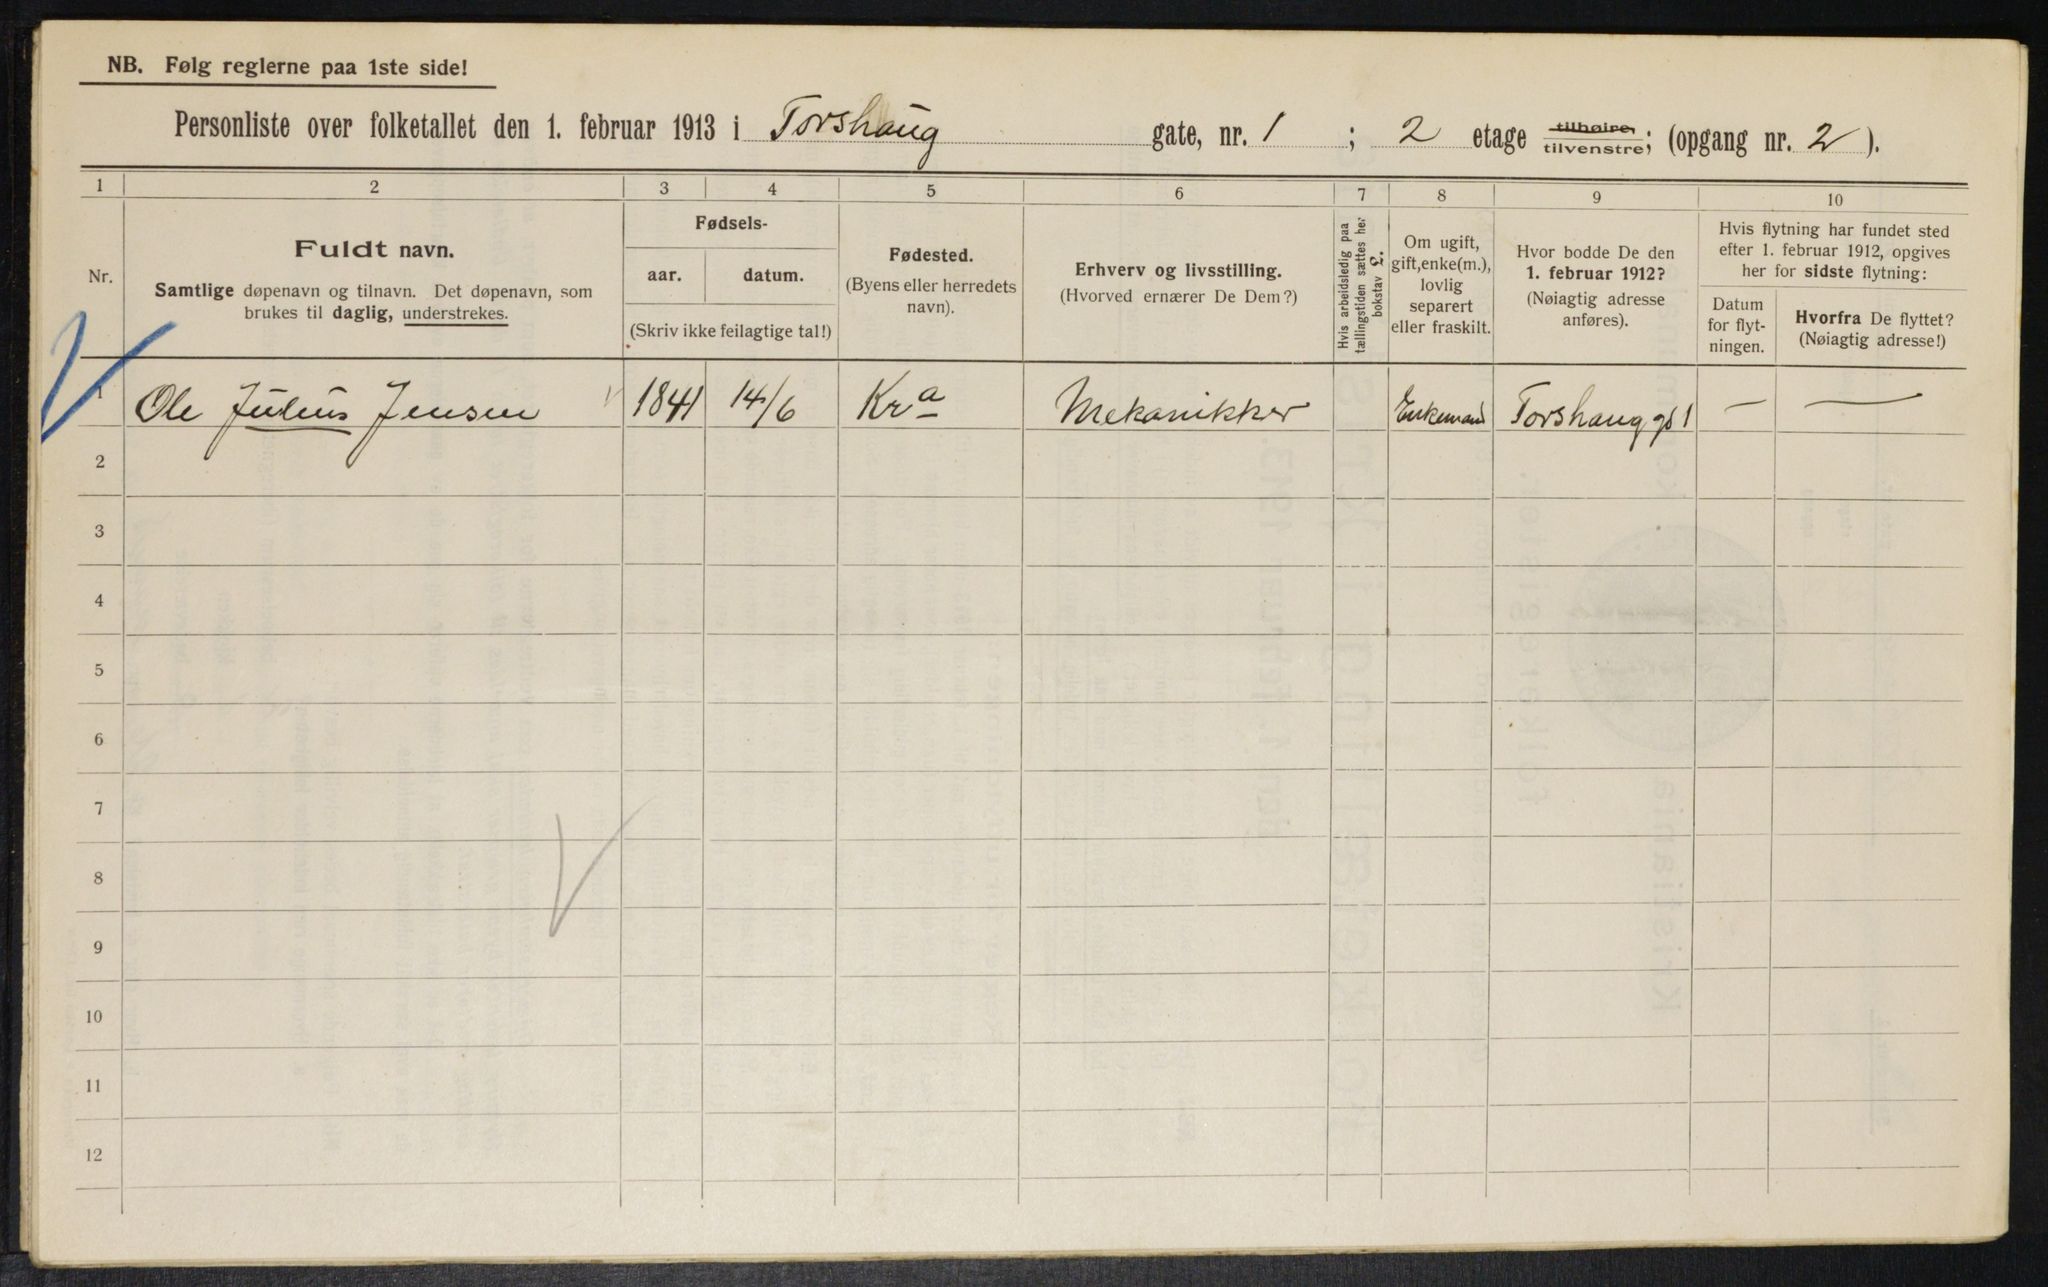 NB. Følg reglerne paa 1ste side!
Personliste over folketallet den 1. februar 1913 i Torshaug gate, nr. 1 ; 2 etage tilhøire/tilvenstre; (opgang nr. 2 ).
1 2 3 4 5 6 7 8 9 10
Nr.
Fuldt navn.
Samtlige døpenavn og tilnavn. Det døpenavn, som
brukes til daglig, understrekes.
Fødsels-
aar. datum.
(Skriv ikke feilagtige tal!)
Fødested.
(Byens eller herredets
navn).
Erhverv og livsstilling.
(Hvorved ernærer De Dem?)
Hvis arbeidsledig paa
tællingstiden sættes her
bokstav l.
Om ugift,
gift, enke(m.),
lovlig
separert
eller fraskilt.
Hvor bodde De den
1. februar 1912?
(Nøiagtig adresse
anføres).
Hvis flytning har fundet sted
efter 1. februar 1912, opgives
her for sidste flytning:
Datum
for flyt-
ningen.
Hvorfra De flyttet?
(Nøiagtig adresse!)
1 Ole Julius Jensen 1841 14/6 Kra Mekanikker Enkemand Torshauggt 1 — —
2
3
4
5
6
7
8
9
10
11
12